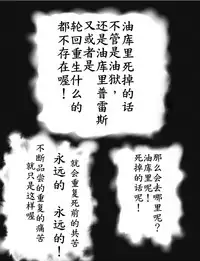 油库里死掉的话
不管是油狱,
还是油库里普雷斯
又或者是
轮回重生什么的
都不存在喔!
那么会去哪里呢?
油库里呢!
死掉的话呢!
就会重复死前的共苦
永远的 永远的!
不断品尝的重复的痛苦
就只是这样喔